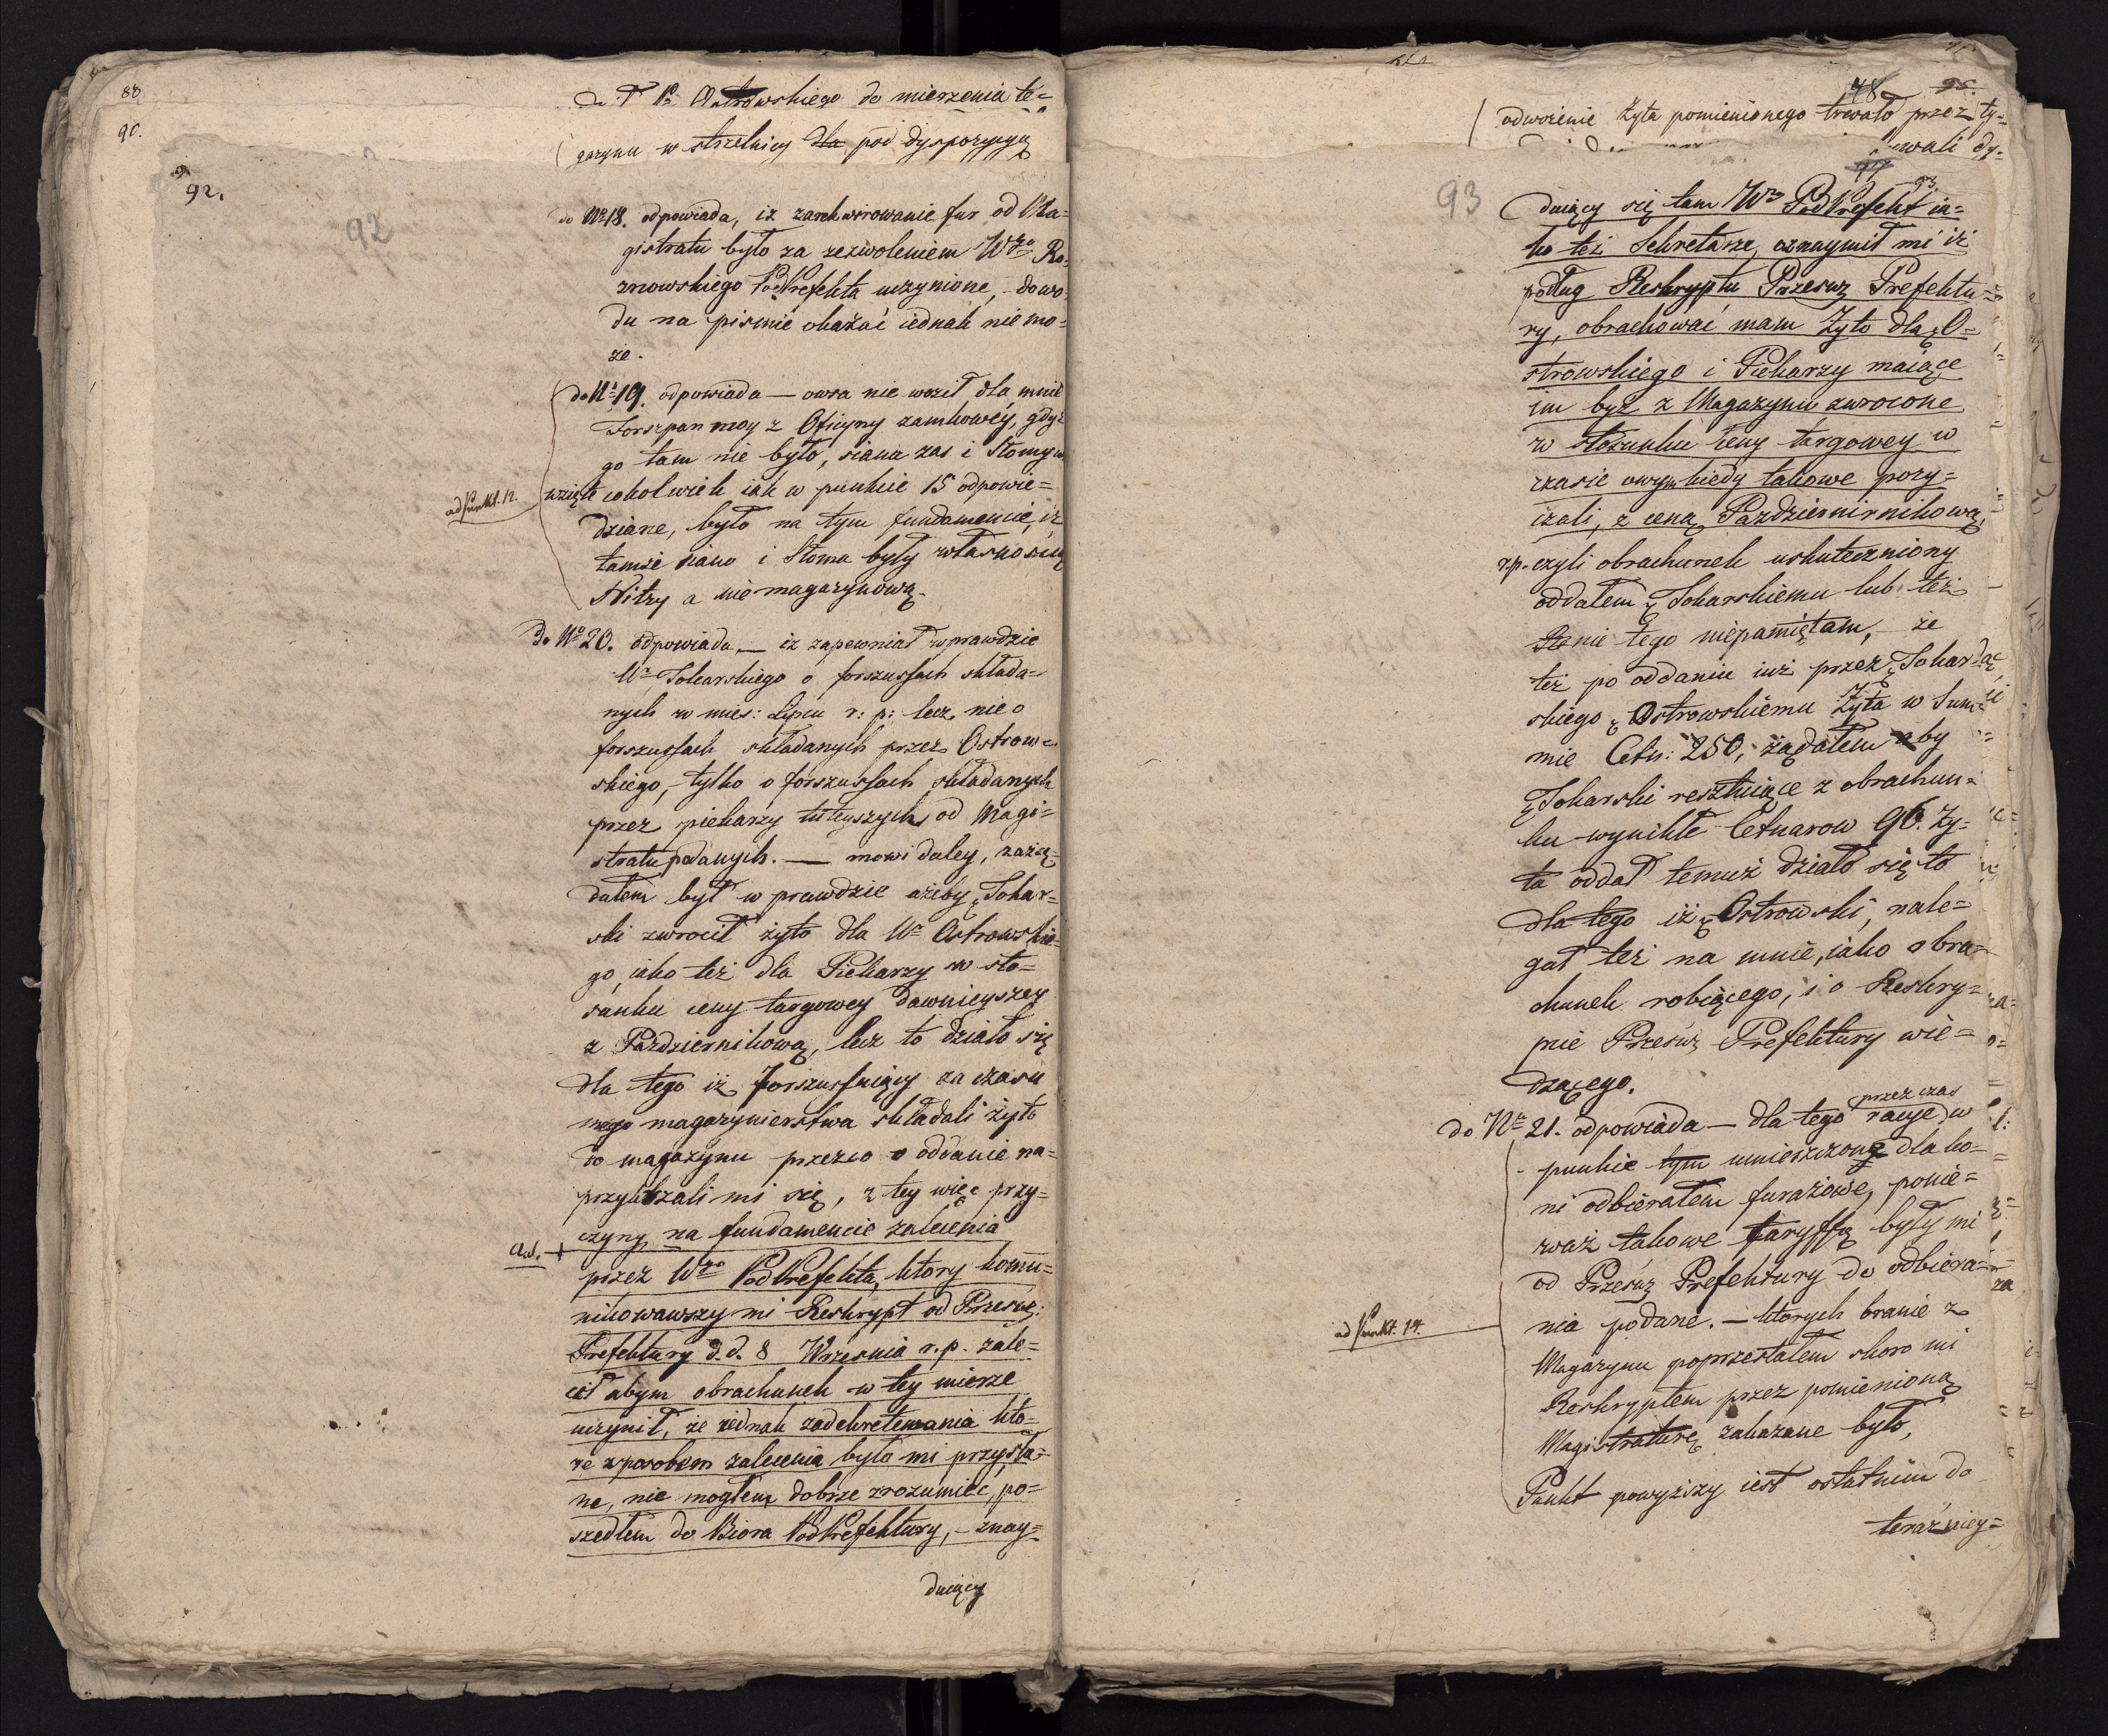 88
90.
do mierzenia te=
gazynu w strzelnicy dla pod dyspozycyą
92.
92
do Nro 18. odpowiada, iz zarekwirowanie fur od Ma=
gistratu było za zezwoleniem Wgo Ro=
znowskiego PodPrefekta uczynione, dowo=
du na pismie okazać iednak nie mo=
że.
do No 19. odpowiada — owsa nie woził dla mnie
Forszpan moy z Oficyny zamkowey, gdyż
go tam nie było, siana zas i Słomy w
wzięte cokolwiek iak w punkcie 15 odpowie=
ad Punkt. 12.
dziane, było na tym fundamencie, iż
tamże siano i Słoma były własnoscią
Nitzy a nie magazynową.
Do No 20. odpowiada, — iz zapewniał wprawdzie
Wo Tokarskiego o forszussach składa=
nych w mies: Lipcu r: p: lecz nie o
forszussach składanych przez Ostrow=
skiego, tylko o forszussach składanych
przez piekarzy tuteyszych od Magi=
stratu podanych. — mowi daley, zażą=
dałem był w prawdzie ażeby Tokar=
ski zwrocił żyto dla Wo Ostrowskie=
go, iako też dla Piekarzy w sto=
sunku ceny targowey dawnieyszey
z Pazdziernikową, lecz to działo się
dla tego iż Forszussuiący za czasu
mego magazynierstwa składali żyto
do magazynu przezco o oddanie na=
przykrzali mi się, z tey więc przy=
czyny na fundamencie zalecenia
ad. +
przez Wgo PodPrefekta, ktory komu=
nikowawszy mi Reskrypt od Przesw:
Prefektury d.d. 8 Wrzesnia r.p. zale=
cił abym obrachunek w tey mierze
uczynił, że iednak zadekretowania kto=
re sposobem zalecenia było mi przysła=
ne, nie mogłem dobrze zrozumieć, po=
szedłem do Biora PodPrefektury, — znay=
duiący
48
95.
odwożenie Zyta pomienionego trwało przez ty=
wali dy=
93
93.
duiący się tam Wo PodPrefekt ia=
ko też Sekretarz, oznaymił mi iż
podług Reskryptu Przesw Prefektu=
ry, obrachować mam Zyto dla O=
strowskiego i Piekarzy maiące
im być z Magazynu zwrocone
w stosunku ceny targowey w
czasie owym kiedy takowe pozy=
czali, z ceną Pazdziernikową,
r.p. czyli obrachunek uskuteczniony
oddałem Tokarskiemu lub też
nie tego niepamiętam, — że
też po oddaniu iuż przez Tokar=
skiego Ostrowskiemu Zyta w Sum=
mie Cetn: 250, żądałem aby
Tokarski resztuiące z obrachun=
ku wynikłe Cetnarow 96. Zy=
ta oddał temuż działo się to
dla tego iż Ostrowski, nale=
gał też na mnie, iako obra=
chunek robiącego, i o Reskry=
pcie Przesw Prefektury wie=
dzącego.
przez czas
do Nro 21. odpowiada — dla tego racye w
punkcie tym umieszczone dla ko=
ni odbierałem furażowe, ponie=
waż takowe taryffą były mi
od Przesw Prefektury do odbiera=
nia podane. — ktorych branie z
ad Punkt. 14.
Magazynu poprzestałem skoro mi
Reskryptem przez pomienioną
Magistraturę zakazane było,
Punkt powyższy iest ostatnim do
teraźniey=